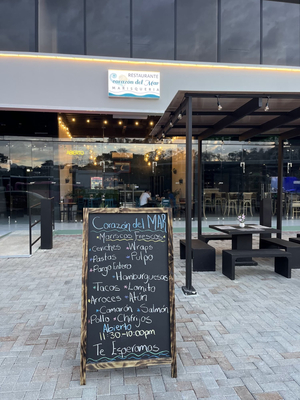 RESTAURANTE
Corazón del Mar
MARISQUERÍA
Corazón del MAR
Mariscos Frescos
Ceviches Wraps
Pastas Pulpo
Pargo Entero
Hamburguesas
Tacos Lomito
Arroces Atún
Camarón Salmón
Pollo Chifrijos
Abierto
11:30-10:00pm
Te Esperamos